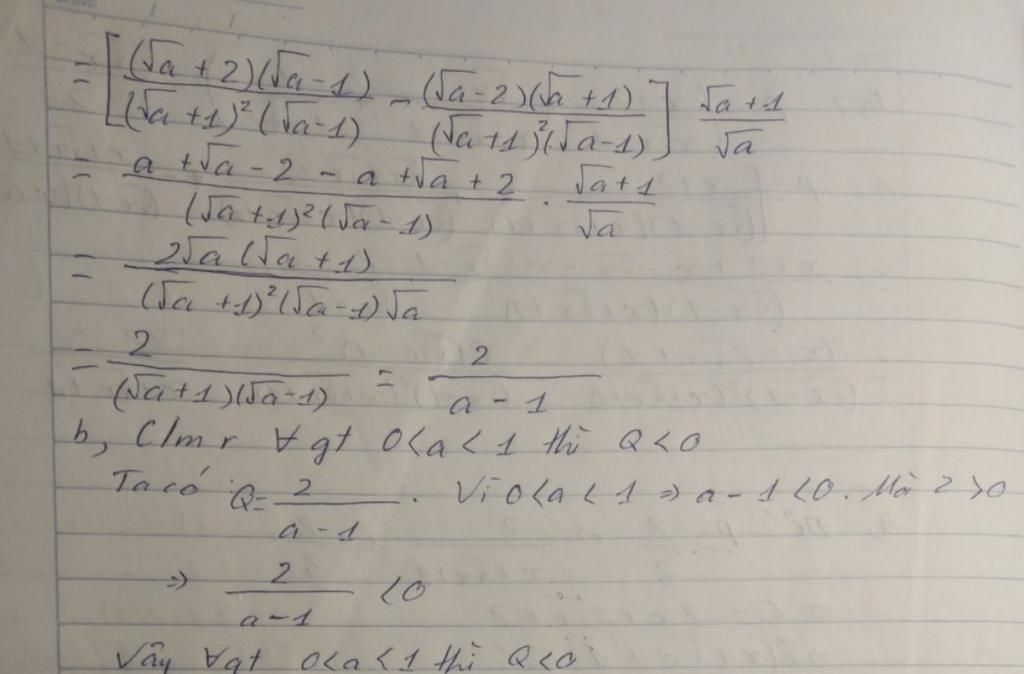 = [ (√a + 2)(√a - 1) / (√a + 1)² (√a - 1) - (√a - 2)(√a + 1) / (√a + 1)² (√a - 1) ] √a + 1 / √a
= a + √a - 2 - a + √a + 2 / (√a + 1)² (√a - 1) . √a + 1 / √a
= 2√a (√a + 1) / (√a + 1)² (√a - 1) √a
= 2 / (√a + 1)(√a - 1) = 2 / a - 1
b, C/m r ∀ gt 0 < a < 1 thì Q < 0
Ta có : Q = 2 / a - 1 . Vì 0 < a < 1 ⇒ a - 1 < 0 . Mà 2 > 0
⇒ 2 / a - 1 < 0
Vậy ∀ gt 0 < a < 1 thì Q < 0